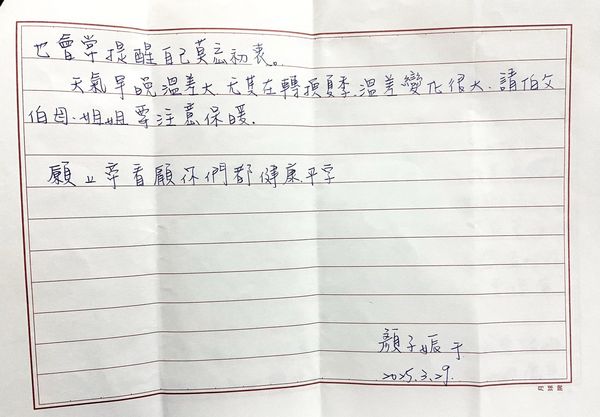 也會常提醒自己莫忘初衷。
天氣早晚溫差大尤其在轉換夏季溫差變化很大.請伯父
伯母.姐姐要注意保暖.
願上帝看顧你們都健康平安
顏子娠于
2025.3.29.